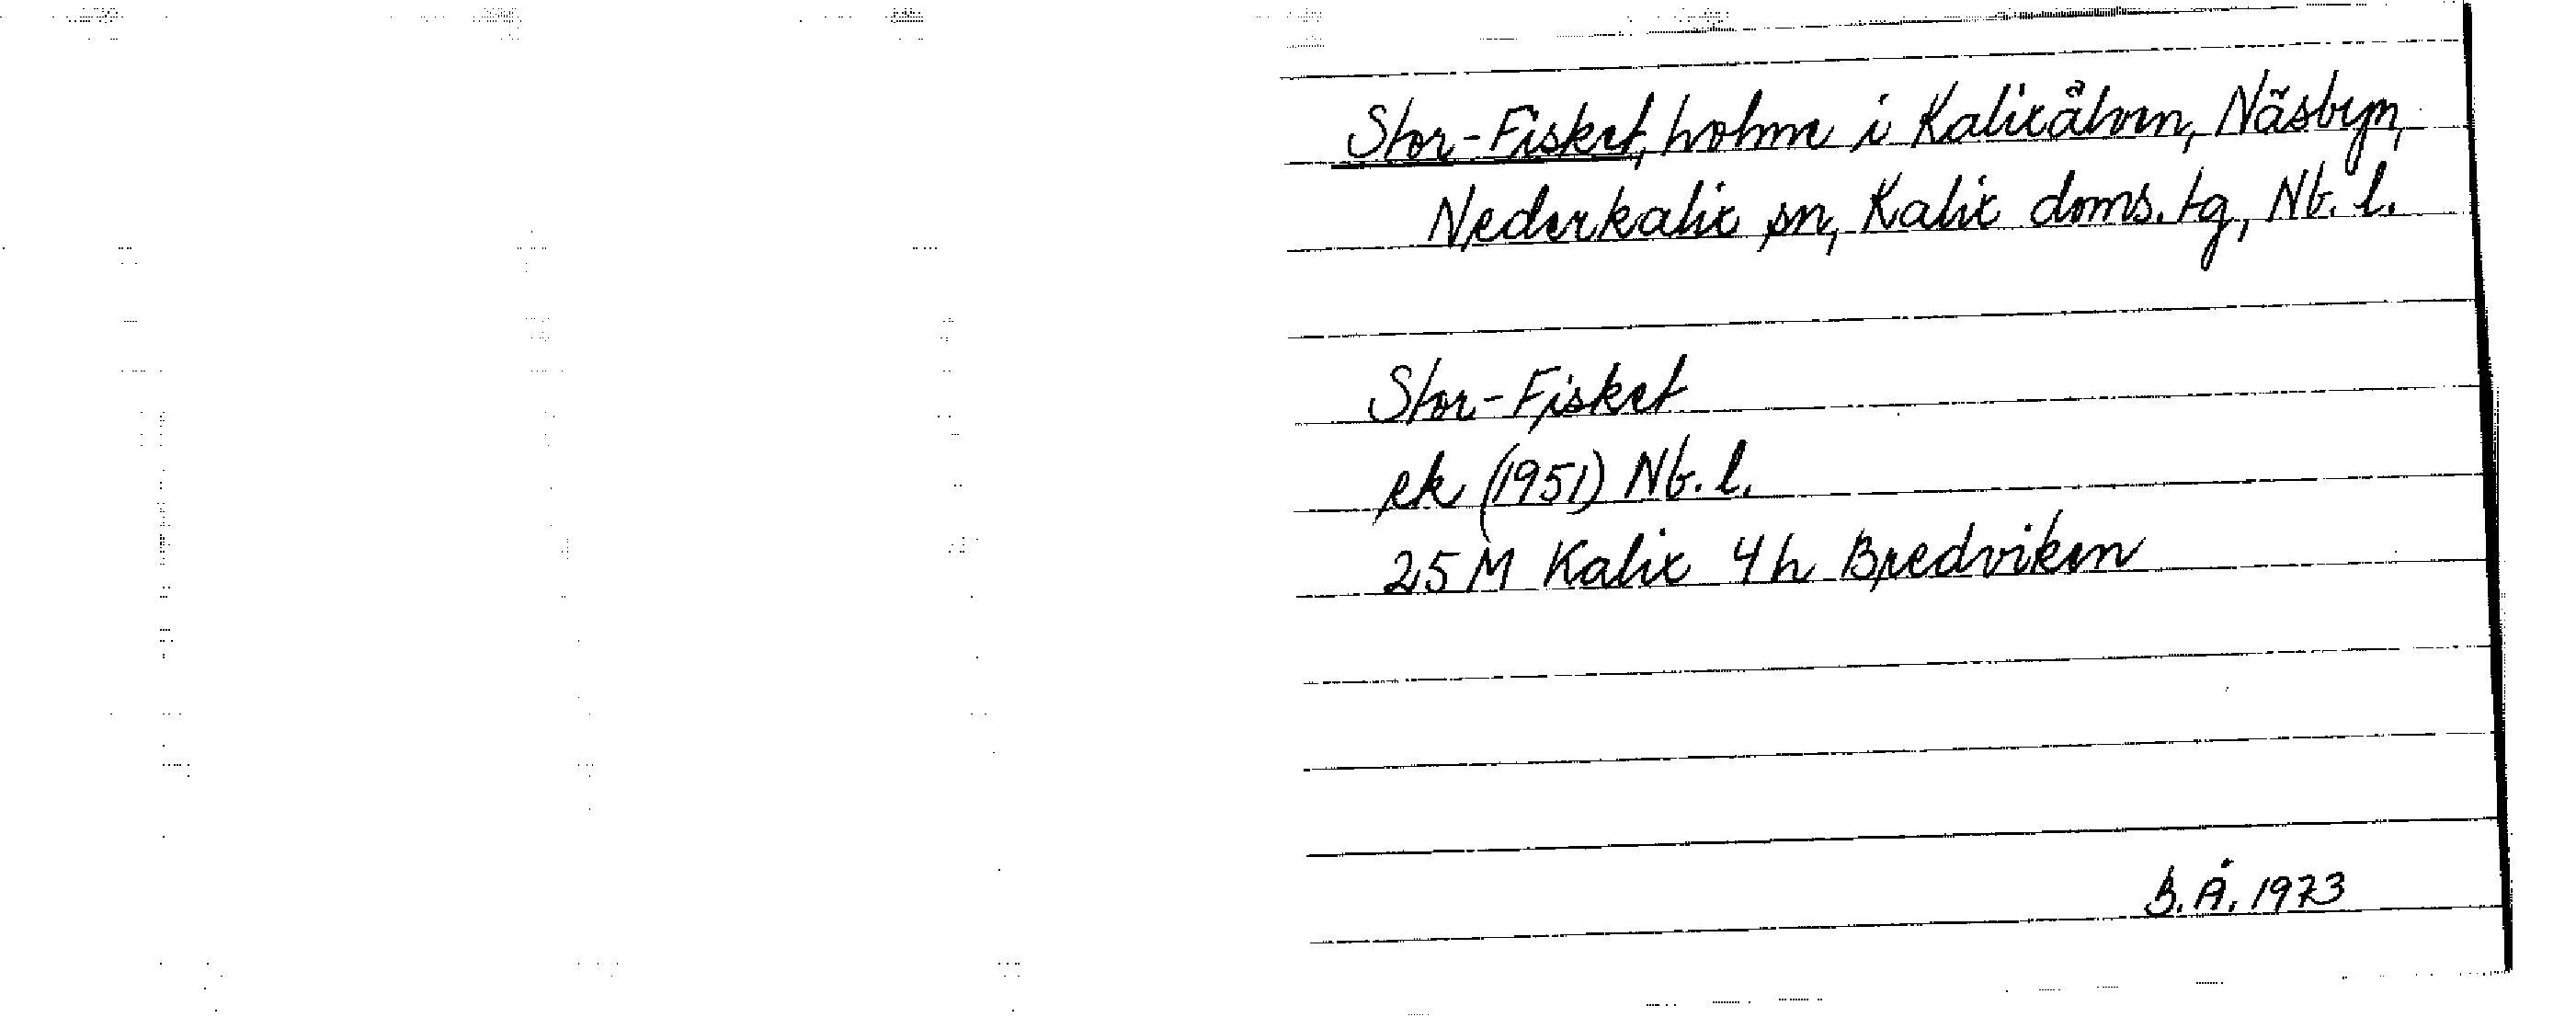 Stor-Fisket, holme i Kalixälven, Näsbyn,
Nederkalix sn, Kalix doms.tg, Nb. l.
Stor-Fisket
ek (1951) Nb. l.
25 M Kalix 4 h Bredviken
B. Å. 1973